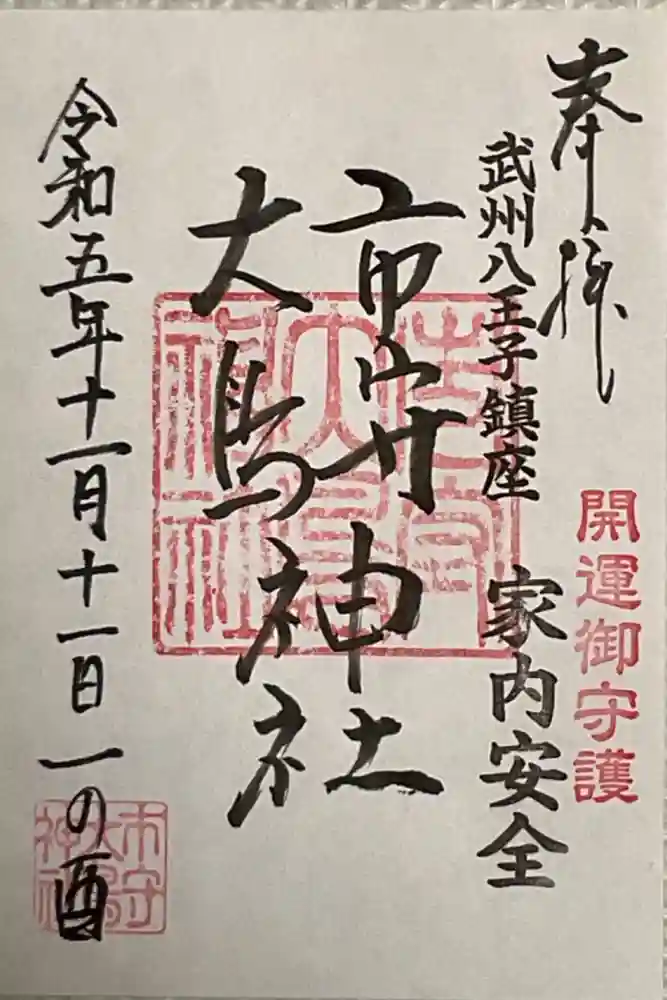 奉拝
開運御守護
武州八王子鎮座 家内安全
市守神社
大鳥神社
令和五年十一月十一日 一の酉
市守
大鳥
神社
市守
大鳥
神社